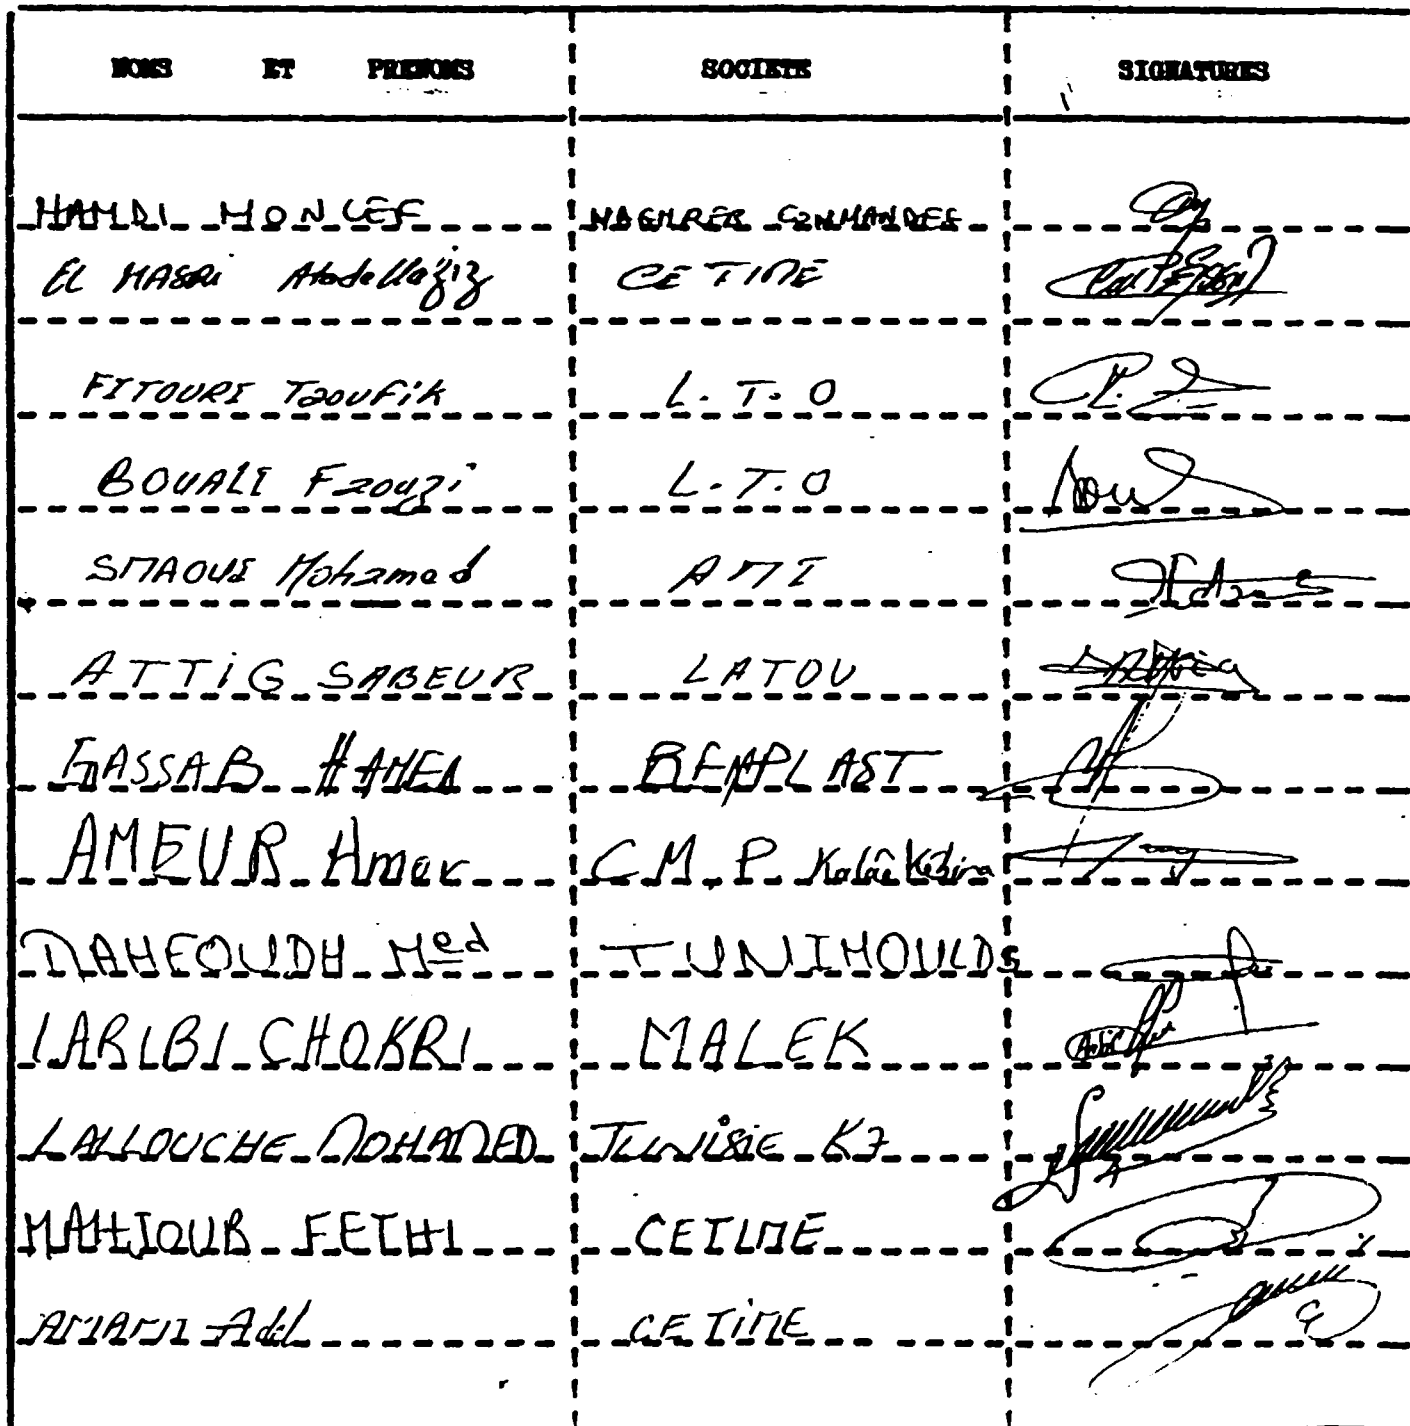 NOMS ET PRENOMS SOCIETE SIGNATURES
HAMDI MONCEF MAGHREB COMMANDES
EL MASRI Abdellaziz CETIME
FITOURI Taoufik L.T.O
BOUALI Faouzi L.T.O
SMAOUI Mohamed AMI
ATTIG SABEUR LATOU
GASSAB HAMED BEMPLAST
AMEUR Amor C.M.P Kalâe Kébira
DAHFOUDH Med TUNIMOULDS
LARIBI CHOKRI MALEK
LALLOUCHE MOHAMED TUNISIE K7
MAHJOUB FETHI CETIME
Adel CETIME